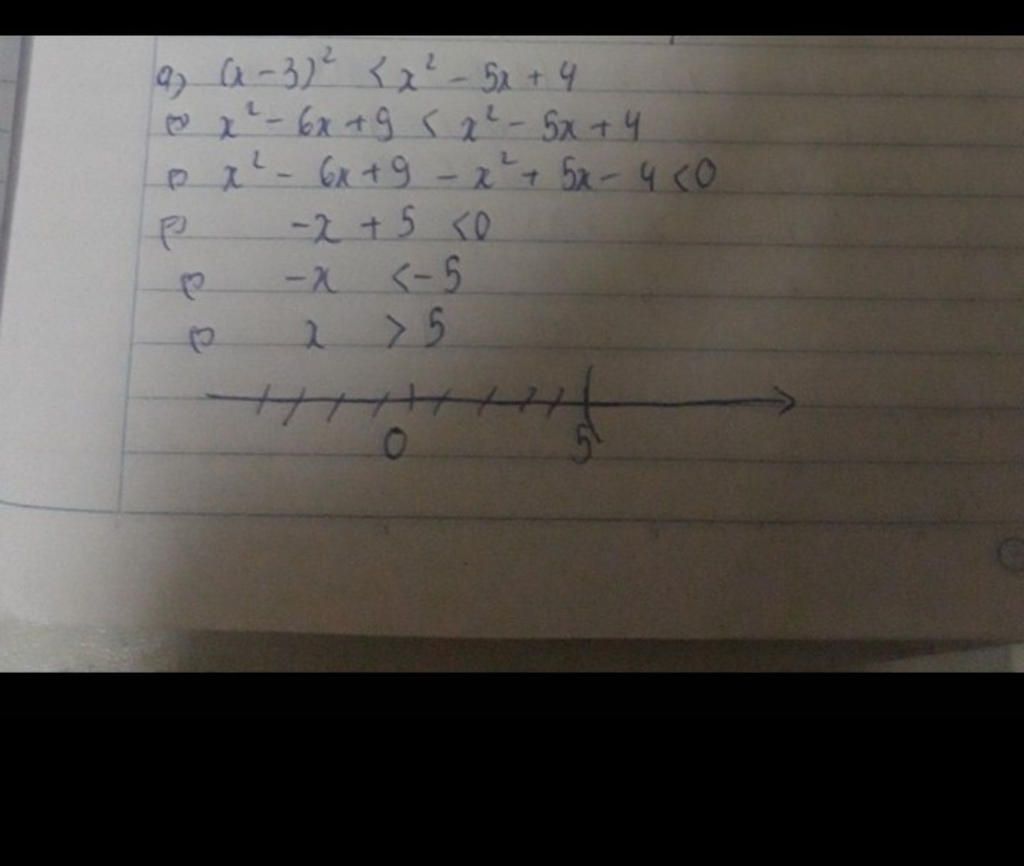 a) (x-3)² < x² - 5x + 4
⇔ x² - 6x + 9 < x² - 5x + 4
⇔ x² - 6x + 9 - x² + 5x - 4 < 0
⇔ -x + 5 < 0
⇔ -x < -5
⇔ x > 5
0 5